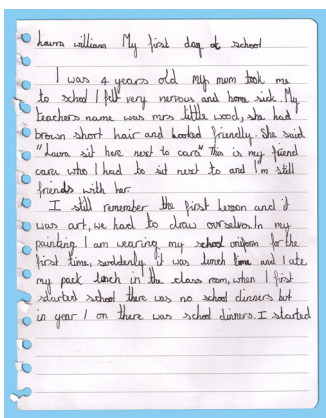 Laura william My first day at school
I was 4 years old my mum took me
to schol I felt very nervous and home sick. My
teachers name was mrs little wood, she had
brown short hair and looked friendly. She said
"Laura sit here next to cara" This is my friend
cara who I had to sit next to and I'm still
friends with her.
I still remember the first lesson and it
was art, we had to draw ourselvs. In my
painting I am wearing my school uniform for the
first time, suddenly it was lunch time and I ate
my pack lunch in the class room, when I first
started school there was no school dinners but
in year 1 on there was school dinners. I started